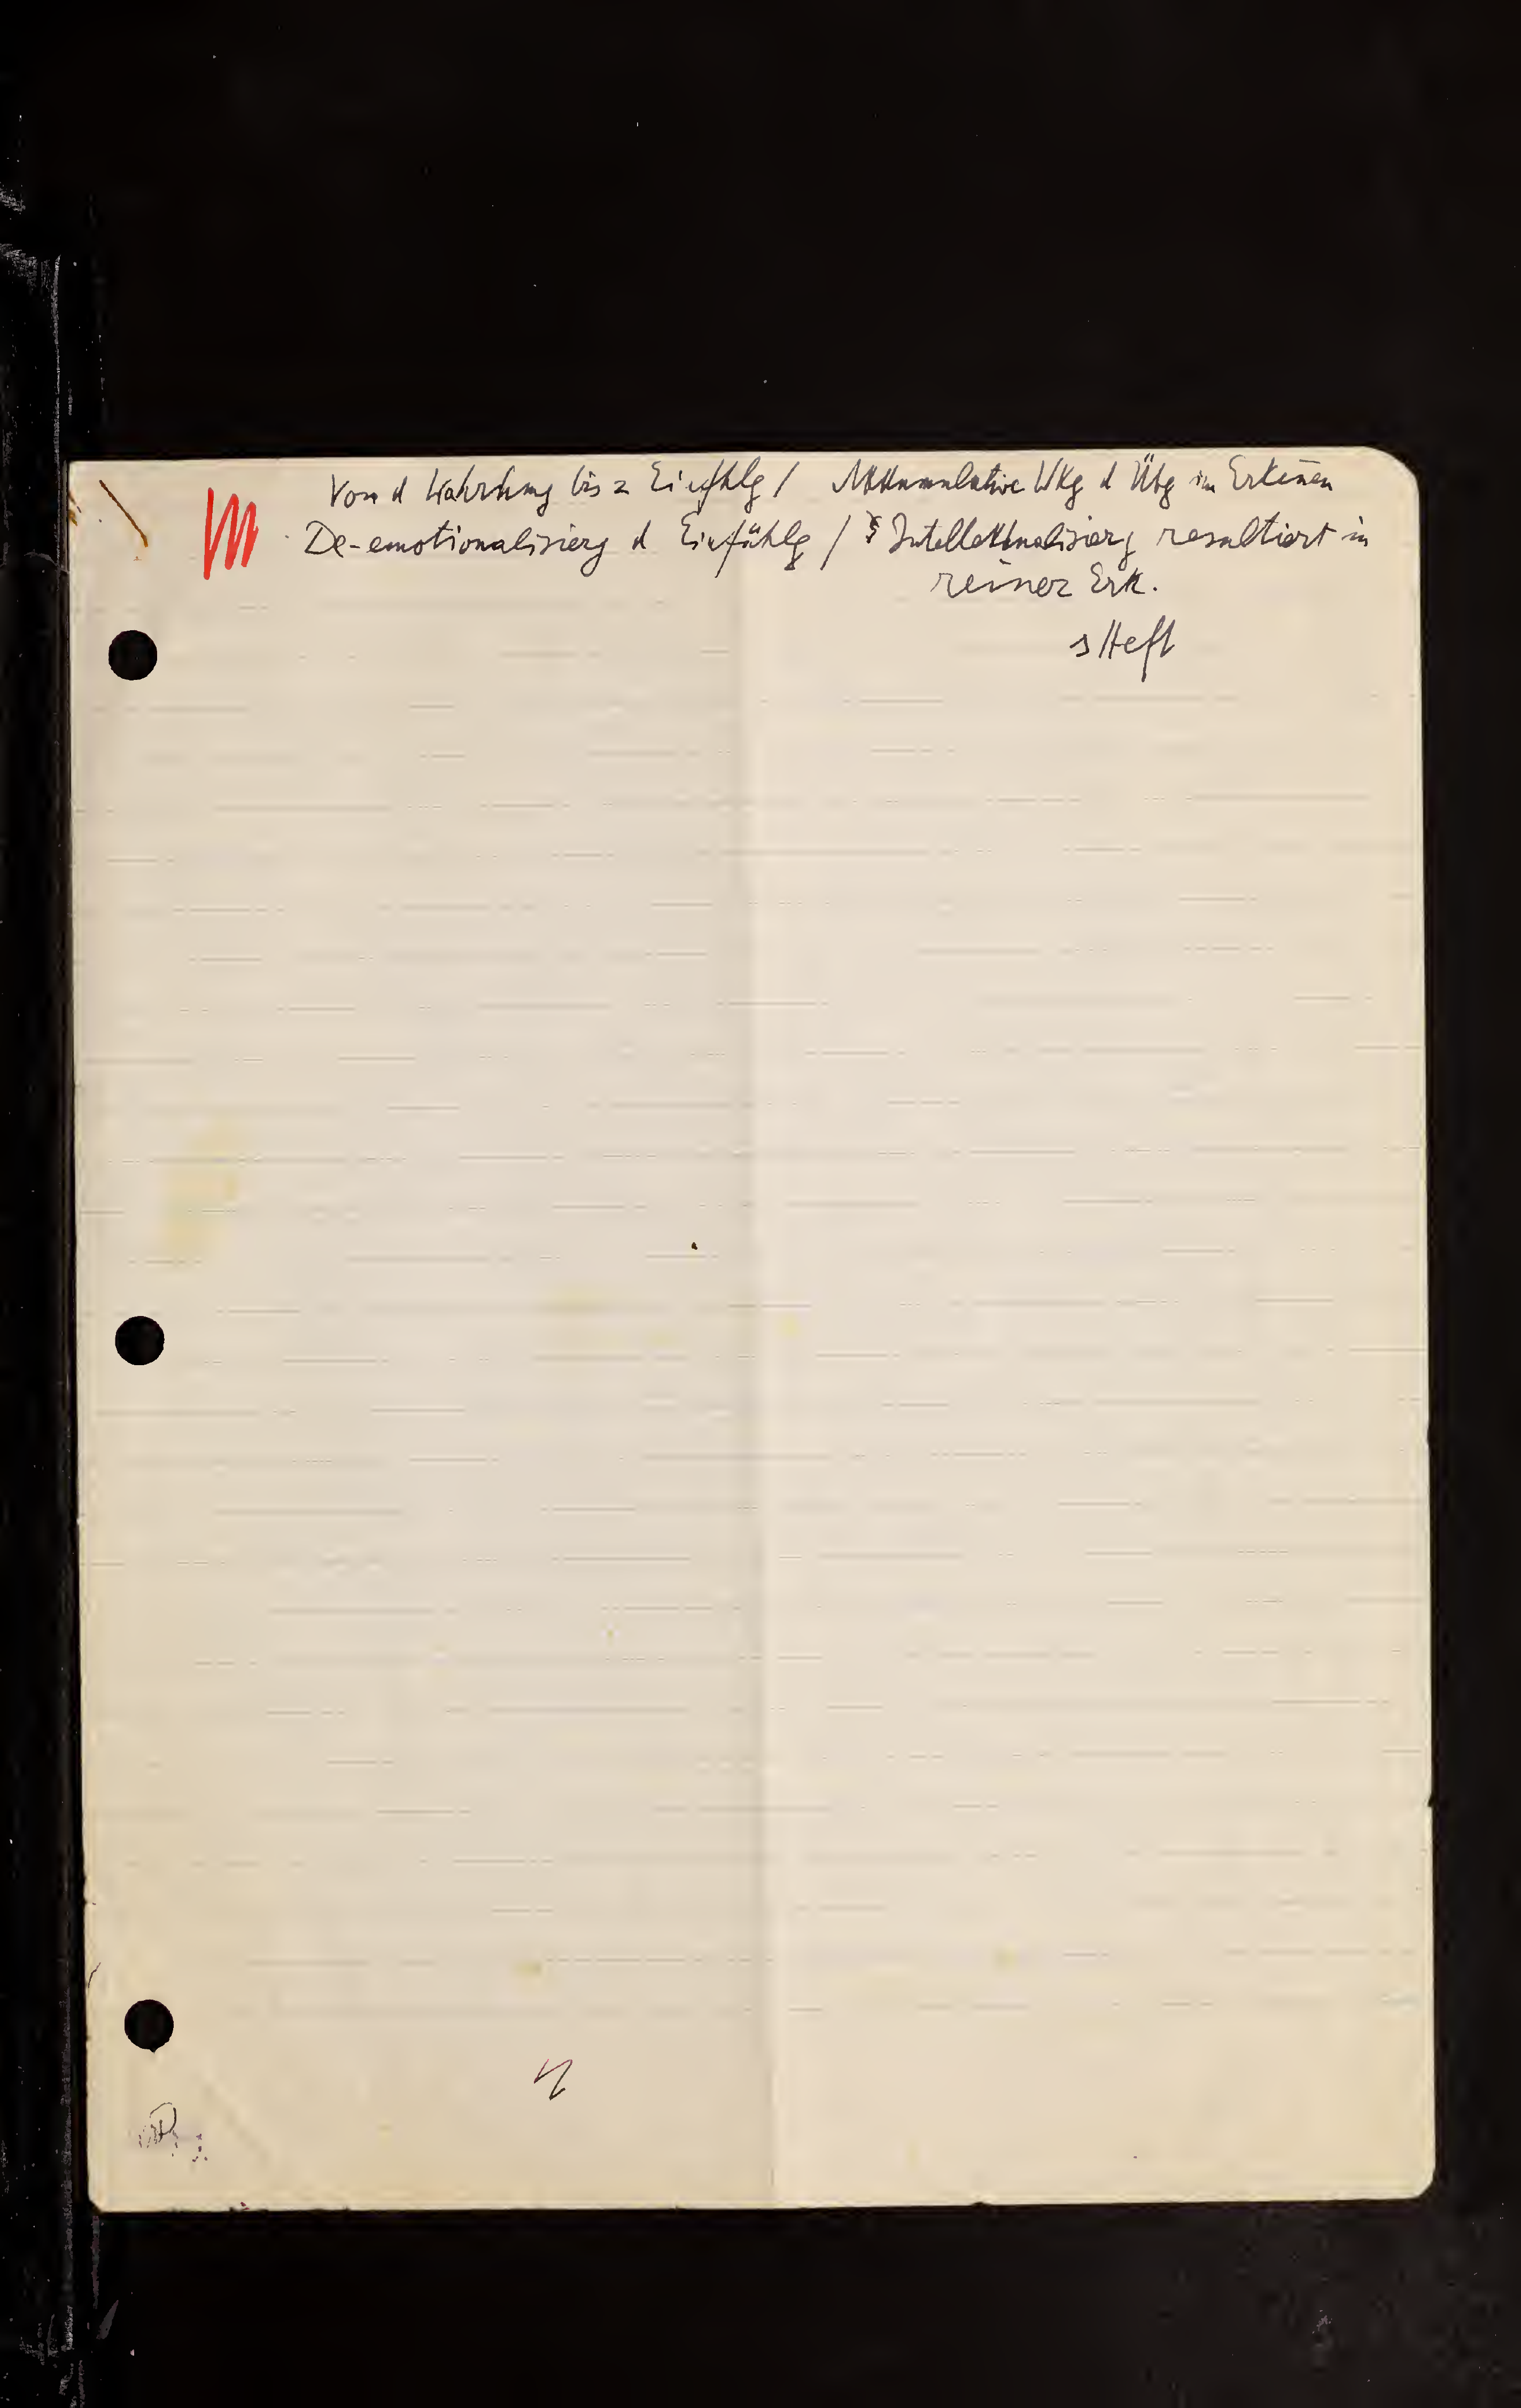 Von d Wahrhmg bis z Einfhlg / Akkumulative Wkg d Übg im Erkeñen
De-emotionalisierg d Einfühlg / Intellektualisierg resultiert in
reiner Erk.
s Heft